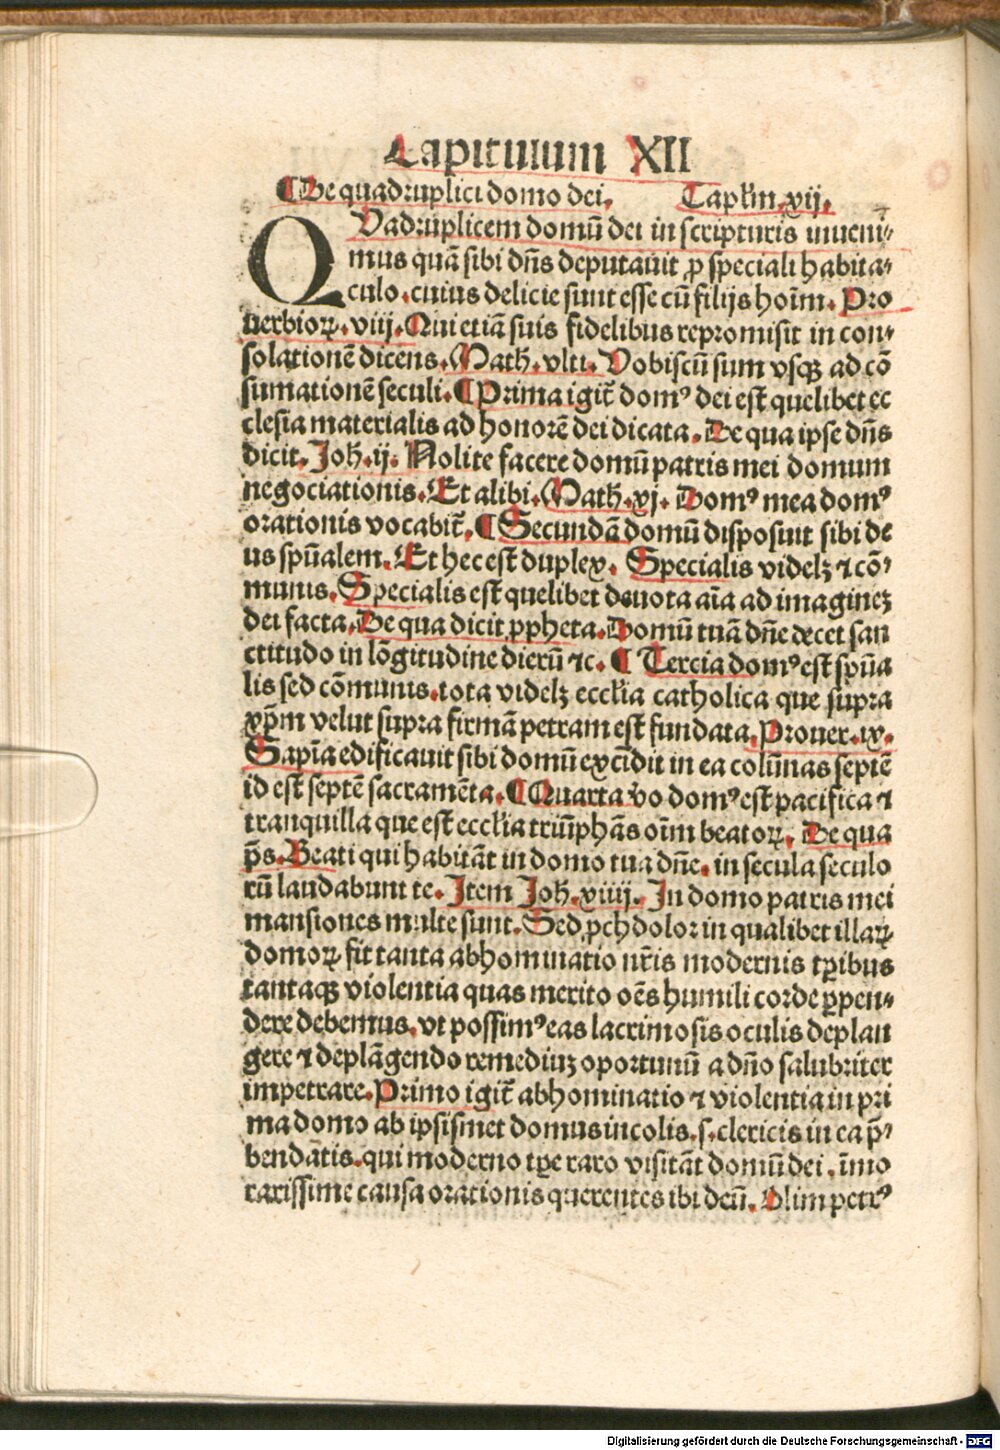 Capitulum XII
¶De quadruplici domo dei. Capl'm .xij.
QVadruplicem domū dei in scripturis inueni-
mus quā sibi dn̄s deputauit ꝓ speciali habita-
culo.cuius delicie sunt esse cū filijs hoīm. Pro
uerbioꝝ.viij.Qui etiā suis fidelibus repromisit in con-
solationē dicens.Math̄.vlti. Vobiscū sum vsqꝫ ad cō
sumationē seculi.¶Prima igit̄ domꝰ dei est quelibet ec
clesia materialis ad honorē dei dicata.De qua ipse dn̄s
dicit.Joh̄.ij. Nolite facere domū patris mei domum
negociationis.Et alibi.Math̄.xj. Domꝰ mea domꝰ
orationis vocabit̄.¶Secundā domū disposuit sibi de
us spūalem.Et hec est duplex. Specialis videlꝫ ⁊ cō-
munis.Specialis est quelibet deuota aīa ad imagineꝫ
dei facta.De qua dicit ꝓpheta.Domū tuā dn̄e decet san
ctitudo in lōgitudine dierū ⁊c.¶ Tercia domꝰ est spūa
lis sed cōmunis.tota videlꝫ eccl'ia catholica que supra
xp̄m velut supra firmā petram est fundata.Prouer.ix.
Sapīa edificauit sibi domū excidit in ea colūnas septē
id est septē sacramēta.¶Quarta v̄o domꝰ est pacifica ⁊
tranquilla que est eccl'ia triūphās oīm beatoꝝ. De qua
p̄s.Beati qui habitāt in domo tua dn̄e.in secula seculo
rū laudabunt te.Item Joh̄.xiiij.In domo patris mei
mansiones multe sunt.Sed ꝓch dolor in qualibet illaꝝ
domoꝝ fit tanta abhominatio nr̄is modernis tꝑibus
tantaqꝫ violentia quas merito oēs humili corde ꝑpen-
dere debemus.vt possimꝰ eas lacrimosis oculis deplan
gere ⁊ deplāgendo remediuꝫ oportunū a dn̄o salubriter
impetrare.Primo igit̄ abhominatio ⁊ violentia in pri
ma domo ab ipsismet domus incolis.s.clericis in ea p̄-
bendatis.qui moderno tꝑe raro visitāt domū dei.īmo
rarissime causa orationis querentes ibi deū.Olim petrꝰ
Digitalisierung gefördert durch die Deutsche Forschungsgemeinschaft - DFG